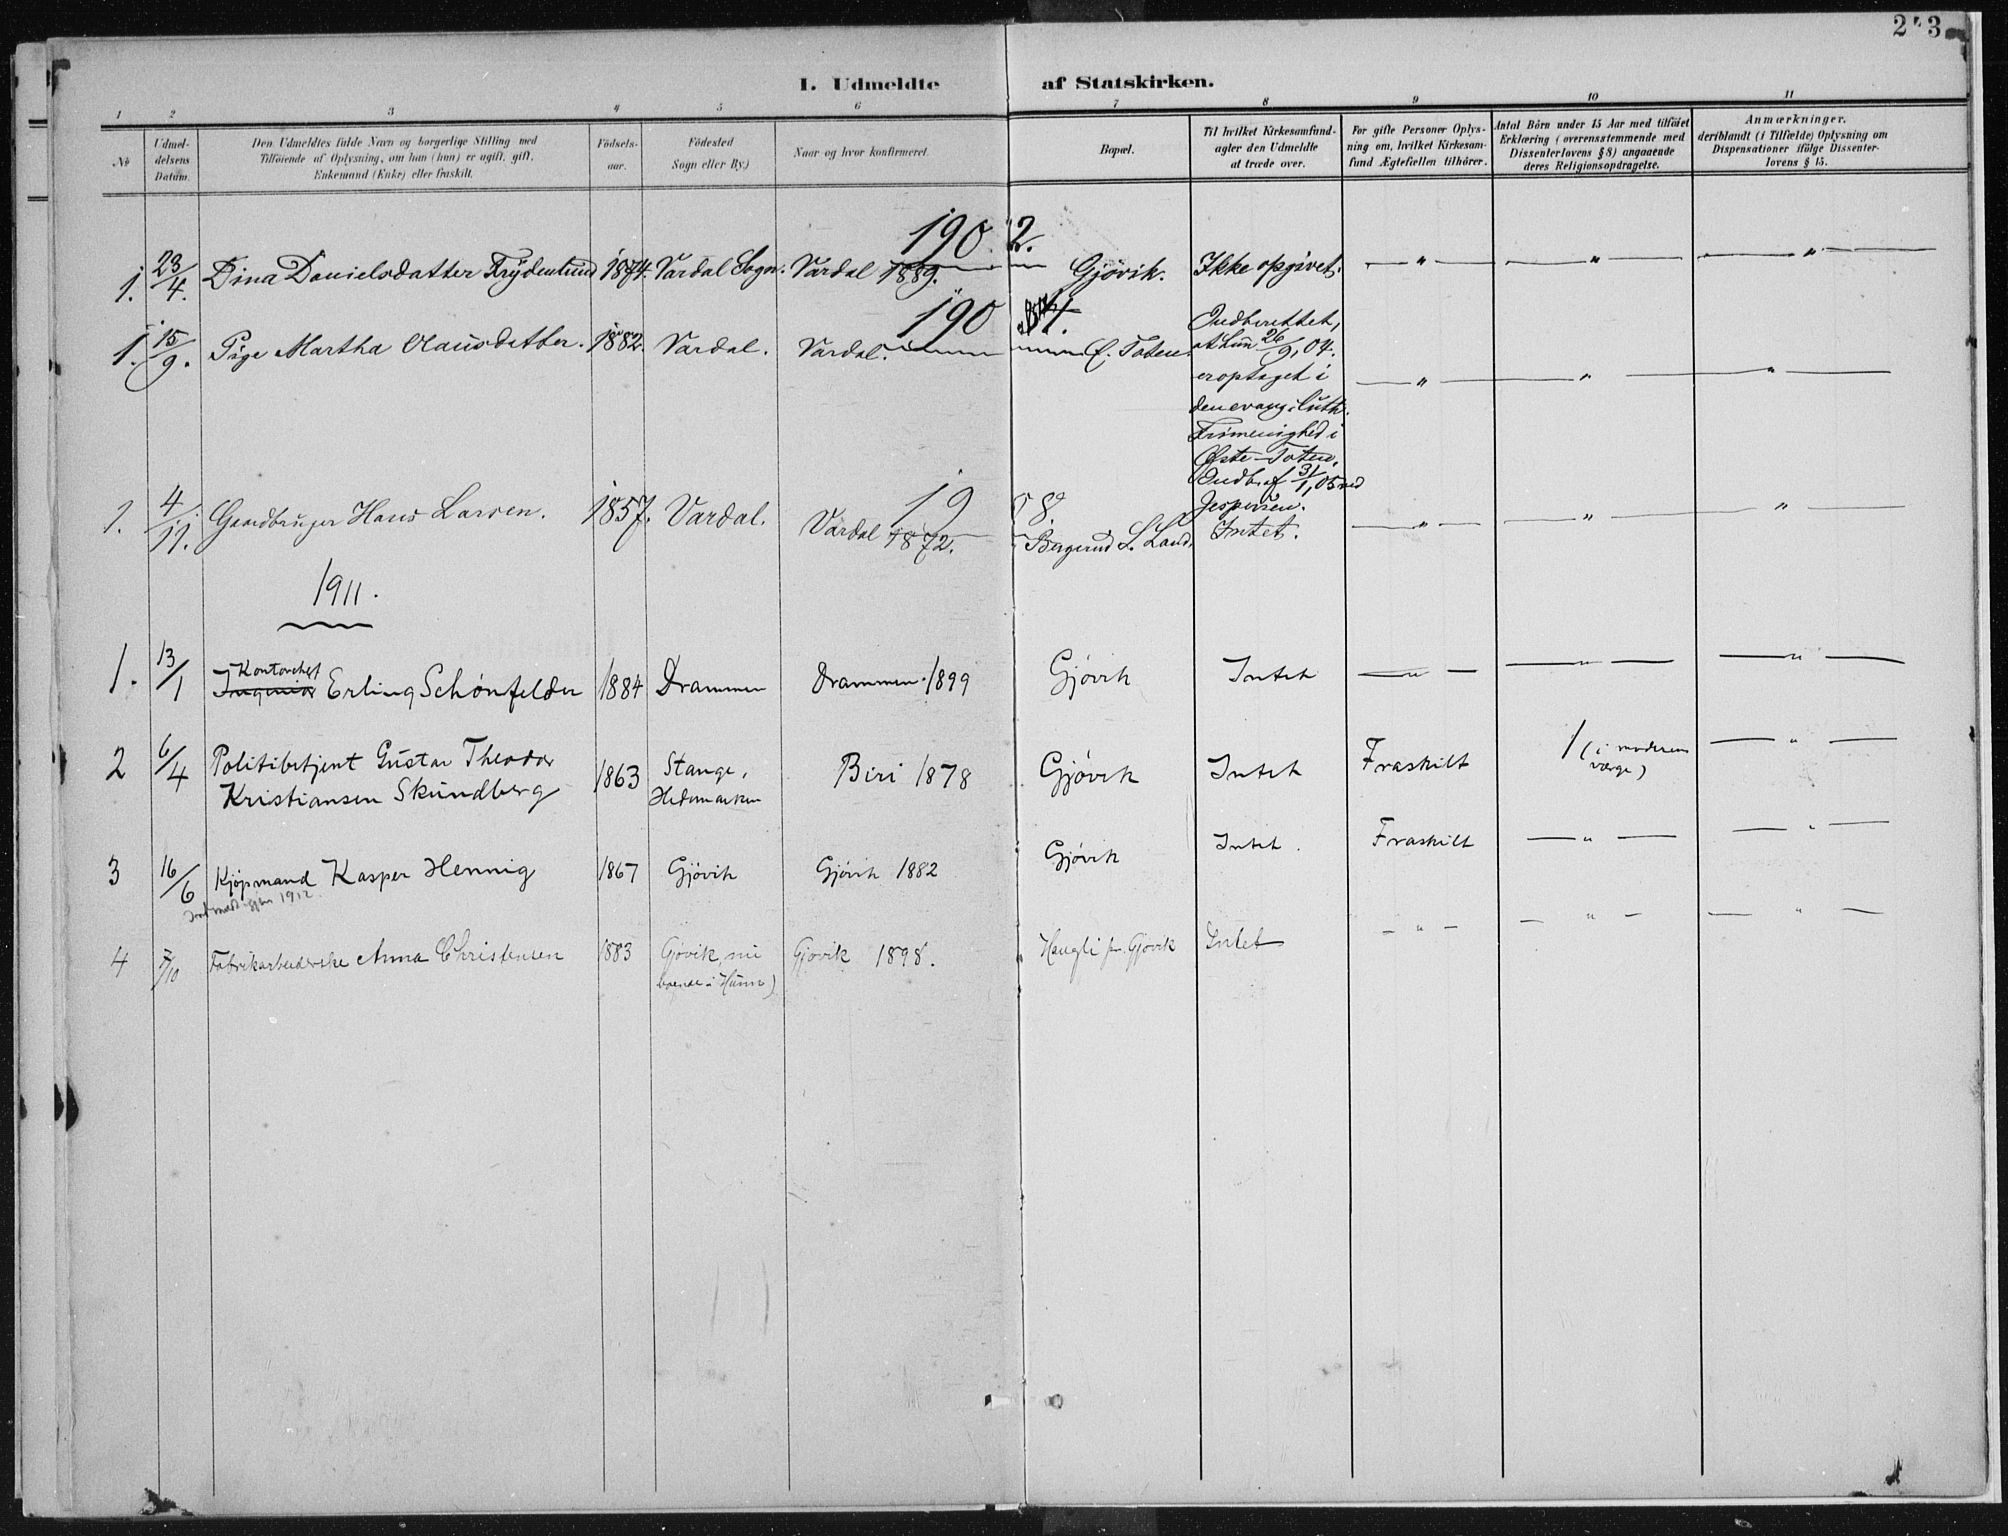 2 3
I. Udmeldte af Statskirken.
1 2 3 4 5 6 7 8 9 10 11
No
Udmel-
delsens
Datum.
Den Udmeldtes fulde Navn og borgerlige Stilling med
Tilföiende af Oplysning, om han (hun) er ugift, gift,
Enkemand (Enke) eller fraskilt.
Födsels-
aar.
Födested
Sogn eller By.)
Naar og hvor konfirmeret.
Bopæl.
Til hvilket Kirkesamfund-
agter den Udmeldte
at træde over.
For gifte Personer Oplys-
ning om, hvilket Kirkesam-
fund Ægtefællen tilhörer.
Antal Börn under 15 Aar med tilföiet
Erklæring (overensstemmende med
Dissenterlovens § 8) angaaende
deres Religionsopdragelse.
Anmærkninger.
deriblandt (i Tilfælde) Oplysning om
Dispensationer ifölge Dissenter-
lovens § 15.
1902.
1. 23/4. Dina Danielsdatter Frydenlund 1874. Vardal Sogn. Vardal 1889. Gjøvik. Ikke opgivet. — " — — " — — " —
190 4.
1. 15/9. Pige Martha Olausdatter. 1882. Vardal. Vardal. Ø. Toten. Indberettet,
at hun 26/9, 04.
er optaget i — " — — " — — " —
den evang. luth.
Frimenighed i
Østre-Toten.
Indb. af 31/1, 05 ved
Jespersen.
19 8.
1. 4/11. Gaardbruger Hans Larsen. 1857. Vardal. Vardal 1872. S. Land. Intet. — " — — " — — " —
1911.
1. 13/1 Kontorchef
Ingeniør Erling Schønfelder 1884 Drammen Drammen 1899 Gjövik Intet — " — — " — — " —
2 6/4 Politibetjent Gustav Theodor
Kristiansen Skundberg 1863 Stange,
Hedemarken Biri 1878 Gjövik Intet Fraskilt 1 (i moderens
værge) — " —
3 16/6 Kjöpmand Kasper Hennig 1867 Gjövik Gjövik 1882 Gjövik Intet. Fraskilt — " — — " —
Indmeldt igjen 1912.
4 /10 Fabrikarbeiderske Anna Christensen 1883 Gjövik, nu
boende i Hunn) Gjøvik 1898. Haugli pr. Gjövik Intet — " — — " — — " —